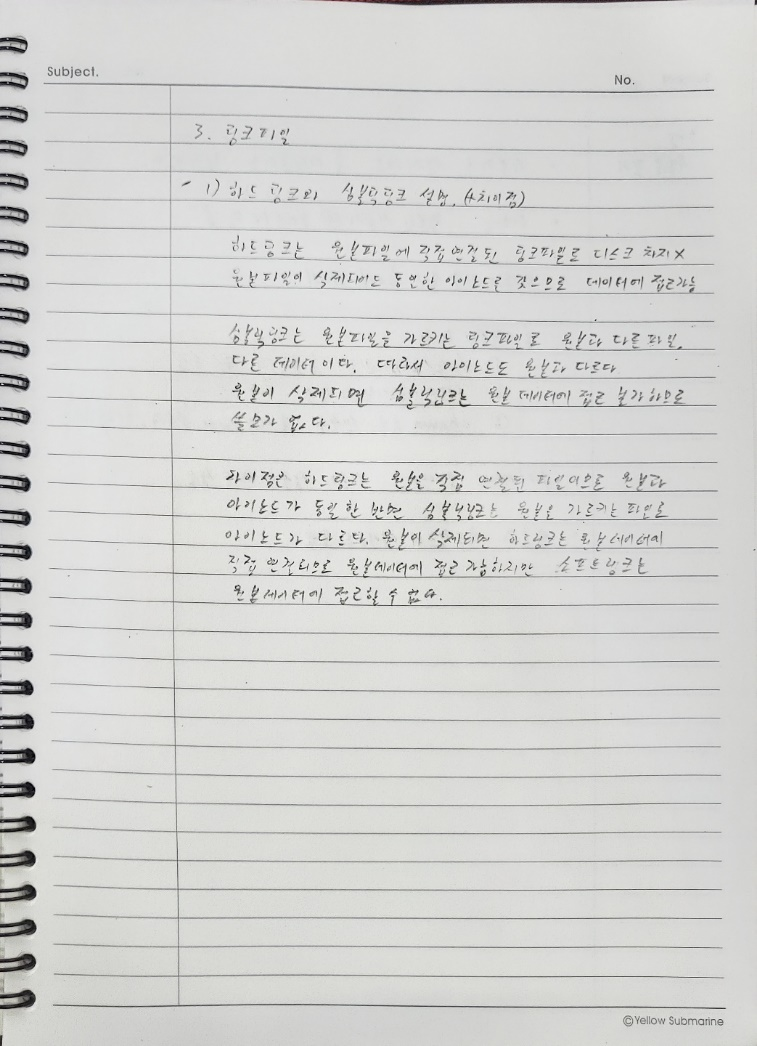 Subject.
No.
3. 링크파일
- 1) 하드링크와 심볼릭링크 설명. (+차이점)
하드링크는 원본파일에 직접 연결된 링크파일로 디스크 차지X
원본파일이 삭제되어도 동일한 아이노드를 갖으므로 데이터에 접근가능
심볼릭링크는 원본파일을 가르키는 링크파일로 원본과 다른파일,
다른 데이터이다. 따라서 아이노드도 원본과 다르다
원본이 삭제되면 심볼릭링크는 원본 데이터에 접근 불가하므로
쓸모가 없다.
차이점은 하드링크는 원본은 직접 연결된 파일이므로 원본과
아이노드가 동일한 반면 심볼릭링크는 원본을 가르키는 파일로
아이노드가 다르다. 원본이 삭제되면 하드링크는 원본데이터에
직접 연결되므로 원본데이터에 접근 가능하지만 소프트링크는
원본데이터에 접근할 수 없다.
©Yellow Submarine